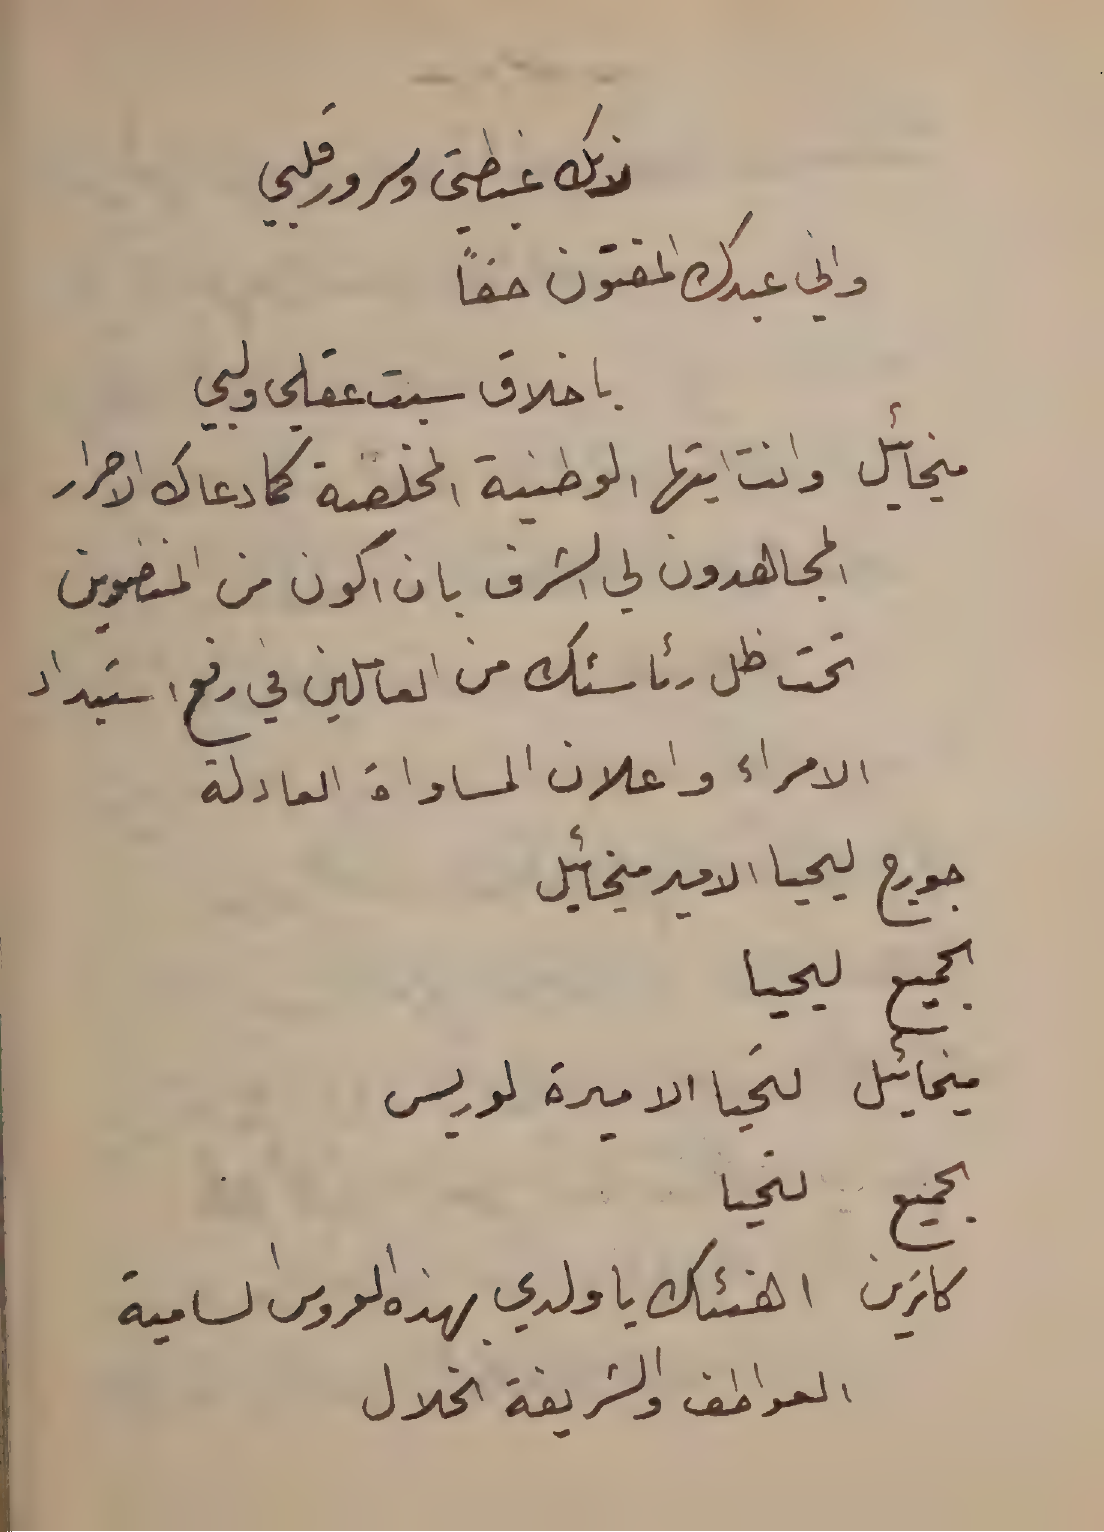 لانك غبطتي وسرور قلبي
واني عبدك المفتون حقاً
باخلاق سبت عقلي ولبي
ميخائيل وانت ايتها الوطنية المخلصة كما دعاك الاحرار
المجاهدون لي الشرف بان اكون من المنضوين
تحت ظل رئاستك من العاملين في رفع استبداد
الامراء واعلان المساواة العادلة
جورج ليحيا الامير ميخائيل
الجميع ليحيا
ميخائيل لتحيا الاميرة لوريس
الجميع لتحيا
كاترين اهنئك يا ولدي بهذه العروس السامية
العواطف والشريفة الخلال